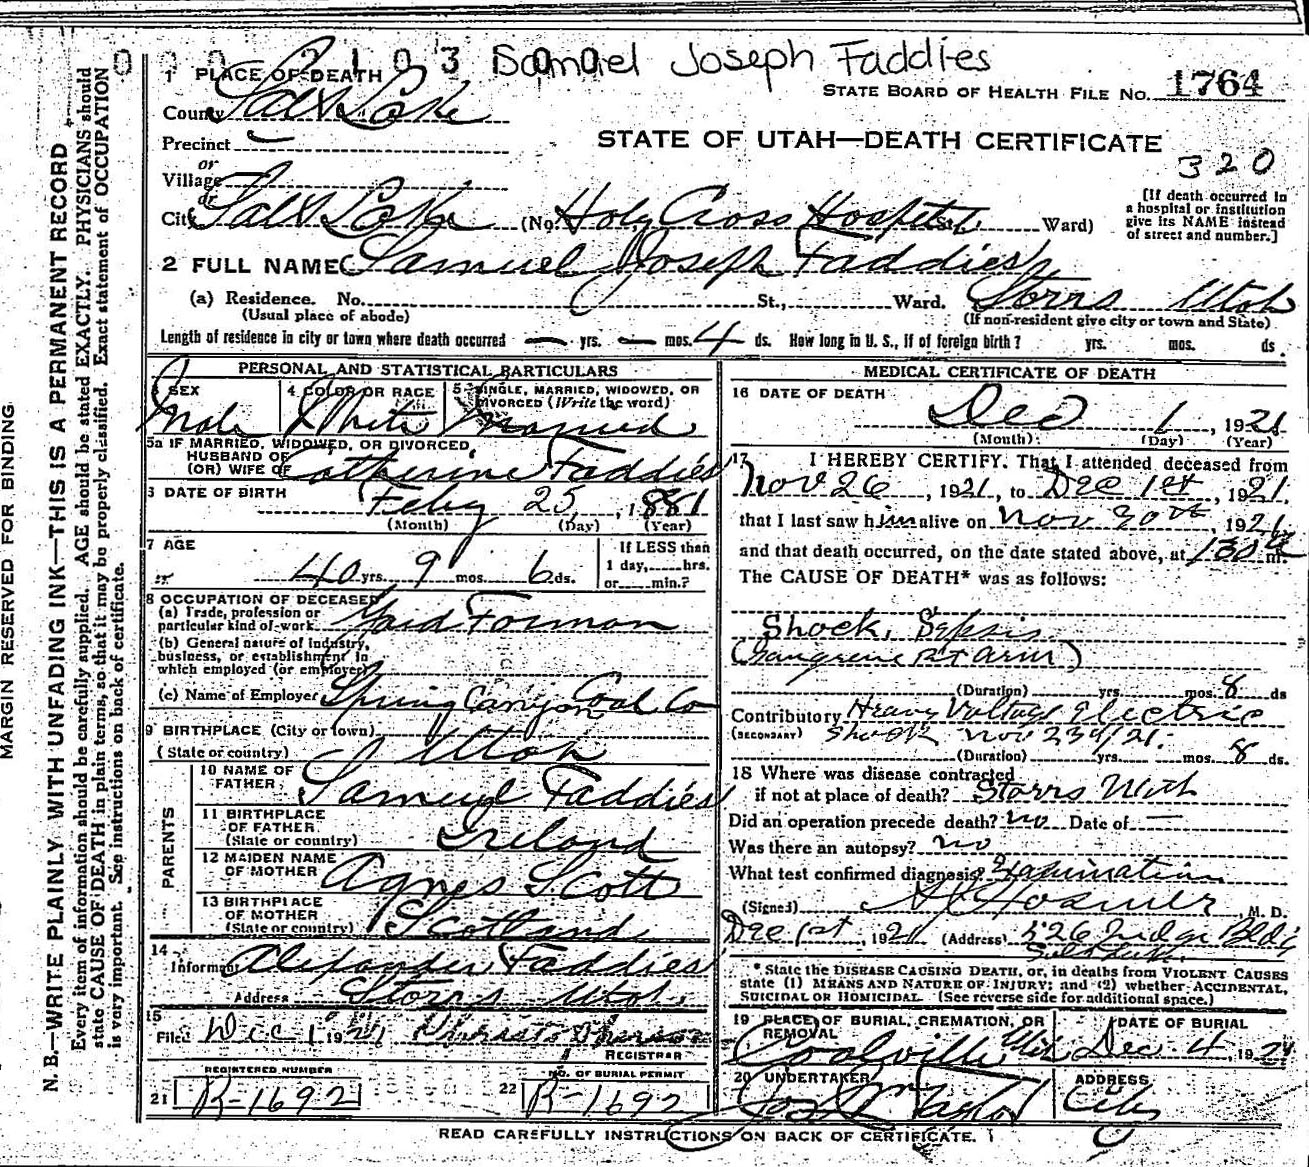 Samuel Joseph Faddies
1 PLACE OF DEATH
STATE BOARD OF HEALTH FILE NO. 1764
County Salt Lake
STATE OF UTAH—DEATH CERTIFICATE
Precinct
320
or
Village
or
City Salt Lake (No. Holy Cross Hospital St., Ward)
[If death occurred in
a hospital or institution
give its NAME instead
of street and number.]
2 FULL NAME Samuel Joseph Faddies
(a) Residence. No. St., Ward. Storrs Utah
(Usual place of abode) (If non-resident give city or town and State)
Length of residence in city or town where death occurred — yrs. — mos. 4 ds. How long in U. S., if of foreign birth? yrs. mos. ds.
PERSONAL AND STATISTICAL PARTICULARS
SEX
4 COLOR OR RACE
5 SINGLE, MARRIED, WIDOWED, OR
DIVORCED (Write the word)
Male White Married
5a IF MARRIED, WIDOWED, OR DIVORCED,
HUSBAND OF
(OR) WIFE OF Catherine Faddies
6 DATE OF BIRTH Feby 25, 1881
(Month) (Day) (Year)
7 AGE
40 yrs. 9 mos. 6 ds.
If LESS than
1 day, hrs.
or min.?
8 OCCUPATION OF DECEASED
(a) Trade, profession or
particular kind of work Forman
(b) General nature of industry,
business, or establishment in
which employed (or employer)
(c) Name of Employer Spring Canyon Coal Co
9 BIRTHPLACE (City or town)
(State or country) Utah
PARENTS
10 NAME OF
FATHER Samuel Faddies
11 BIRTHPLACE
OF FATHER
(State or country) Ireland
12 MAIDEN NAME
OF MOTHER Agnes Scott
13 BIRTHPLACE
OF MOTHER
(State or country) Scotland
14
Informant Alexander Faddies
Address Storrs Utah.
15
Filed Dec 1 1921
REGISTRAR
REGISTERED NUMBER
21 R-1692
NO. OF BURIAL PERMIT
22 R-1692
MEDICAL CERTIFICATE OF DEATH
16 DATE OF DEATH
Dec 1, 1921
(Month) (Day) (Year)
17 I HEREBY CERTIFY, That I attended deceased from
Nov 26, 1921, to Dec 1st, 1921
that I last saw him alive on Nov 30th, 1921
and that death occurred, on the date stated above, at 130 m.
The CAUSE OF DEATH* was as follows:
Shock, Sepsis
(Gangrene Rt arm)
(Duration) yrs. mos. 8 ds
Contributory Heavy Voltage Electric
(SECONDARY) Shock Nov 23d/21.
(Duration) yrs. mos. 8 ds.
18 Where was disease contracted
if not at place of death? Storrs Utah
Did an operation precede death? no Date of —
Was there an autopsy? no
What test confirmed diagnosis? Examination
(Signed) Hosmer, M. D.
Dec 1st, 1921 (Address) 526 Judge Bldg
* State the DISEASE CAUSING DEATH, or, in deaths from VIOLENT CAUSES
state (1) MEANS AND NATURE OF INJURY; and (2) whether ACCIDENTAL,
SUICIDAL OR HOMICIDAL. (See reverse side for additional space.)
19 PLACE OF BURIAL, CREMATION, OR
REMOVAL
DATE OF BURIAL
Coalville Utah Dec 4, 1921
20 UNDERTAKER
ADDRESS
Taylor City
READ CAREFULLY INSTRUCTIONS ON BACK OF CERTIFICATE.
MARGIN RESERVED FOR BINDING
N. B.—WRITE PLAINLY WITH UNFADING INK—THIS IS A PERMANENT RECORD
Every item of information should be carefully supplied. AGE should be stated EXACTLY. PHYSICIANS should
state CAUSE OF DEATH in plain terms, so that it may be properly classified. Exact statement of OCCUPATION
is very important. See instructions on back of certificate.